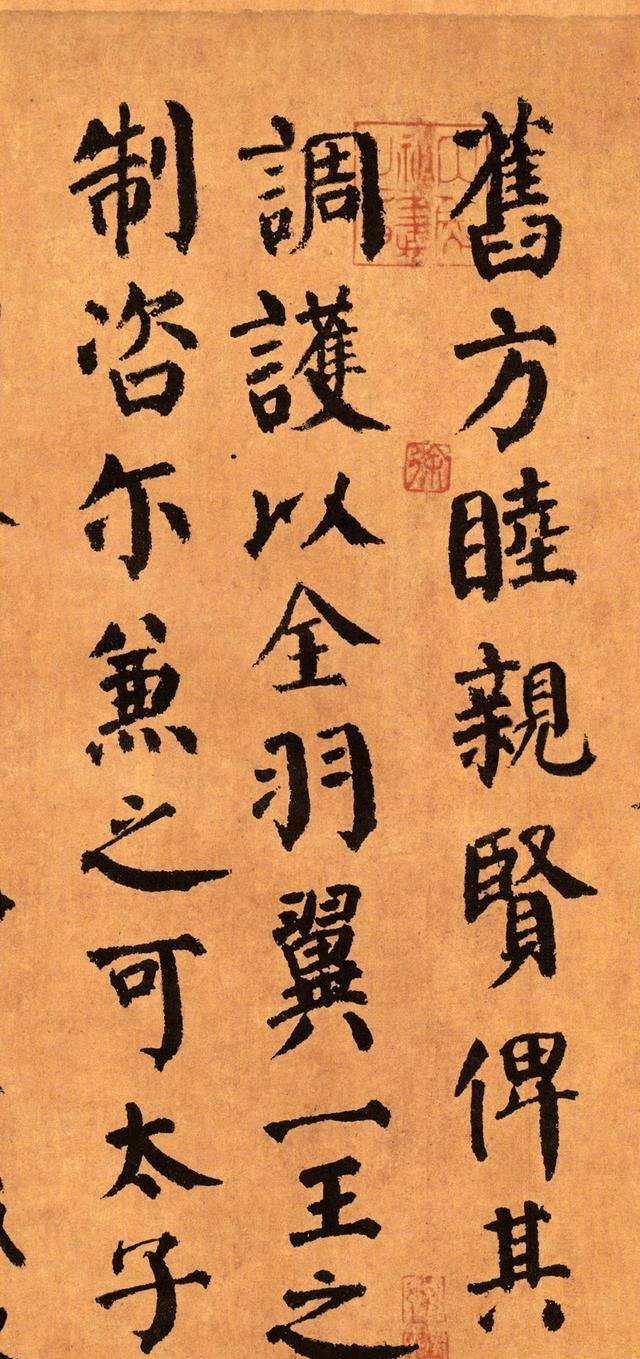 舊方睦親賢俾其
調護以全羽翼一王之
制咨尔兼之可太子